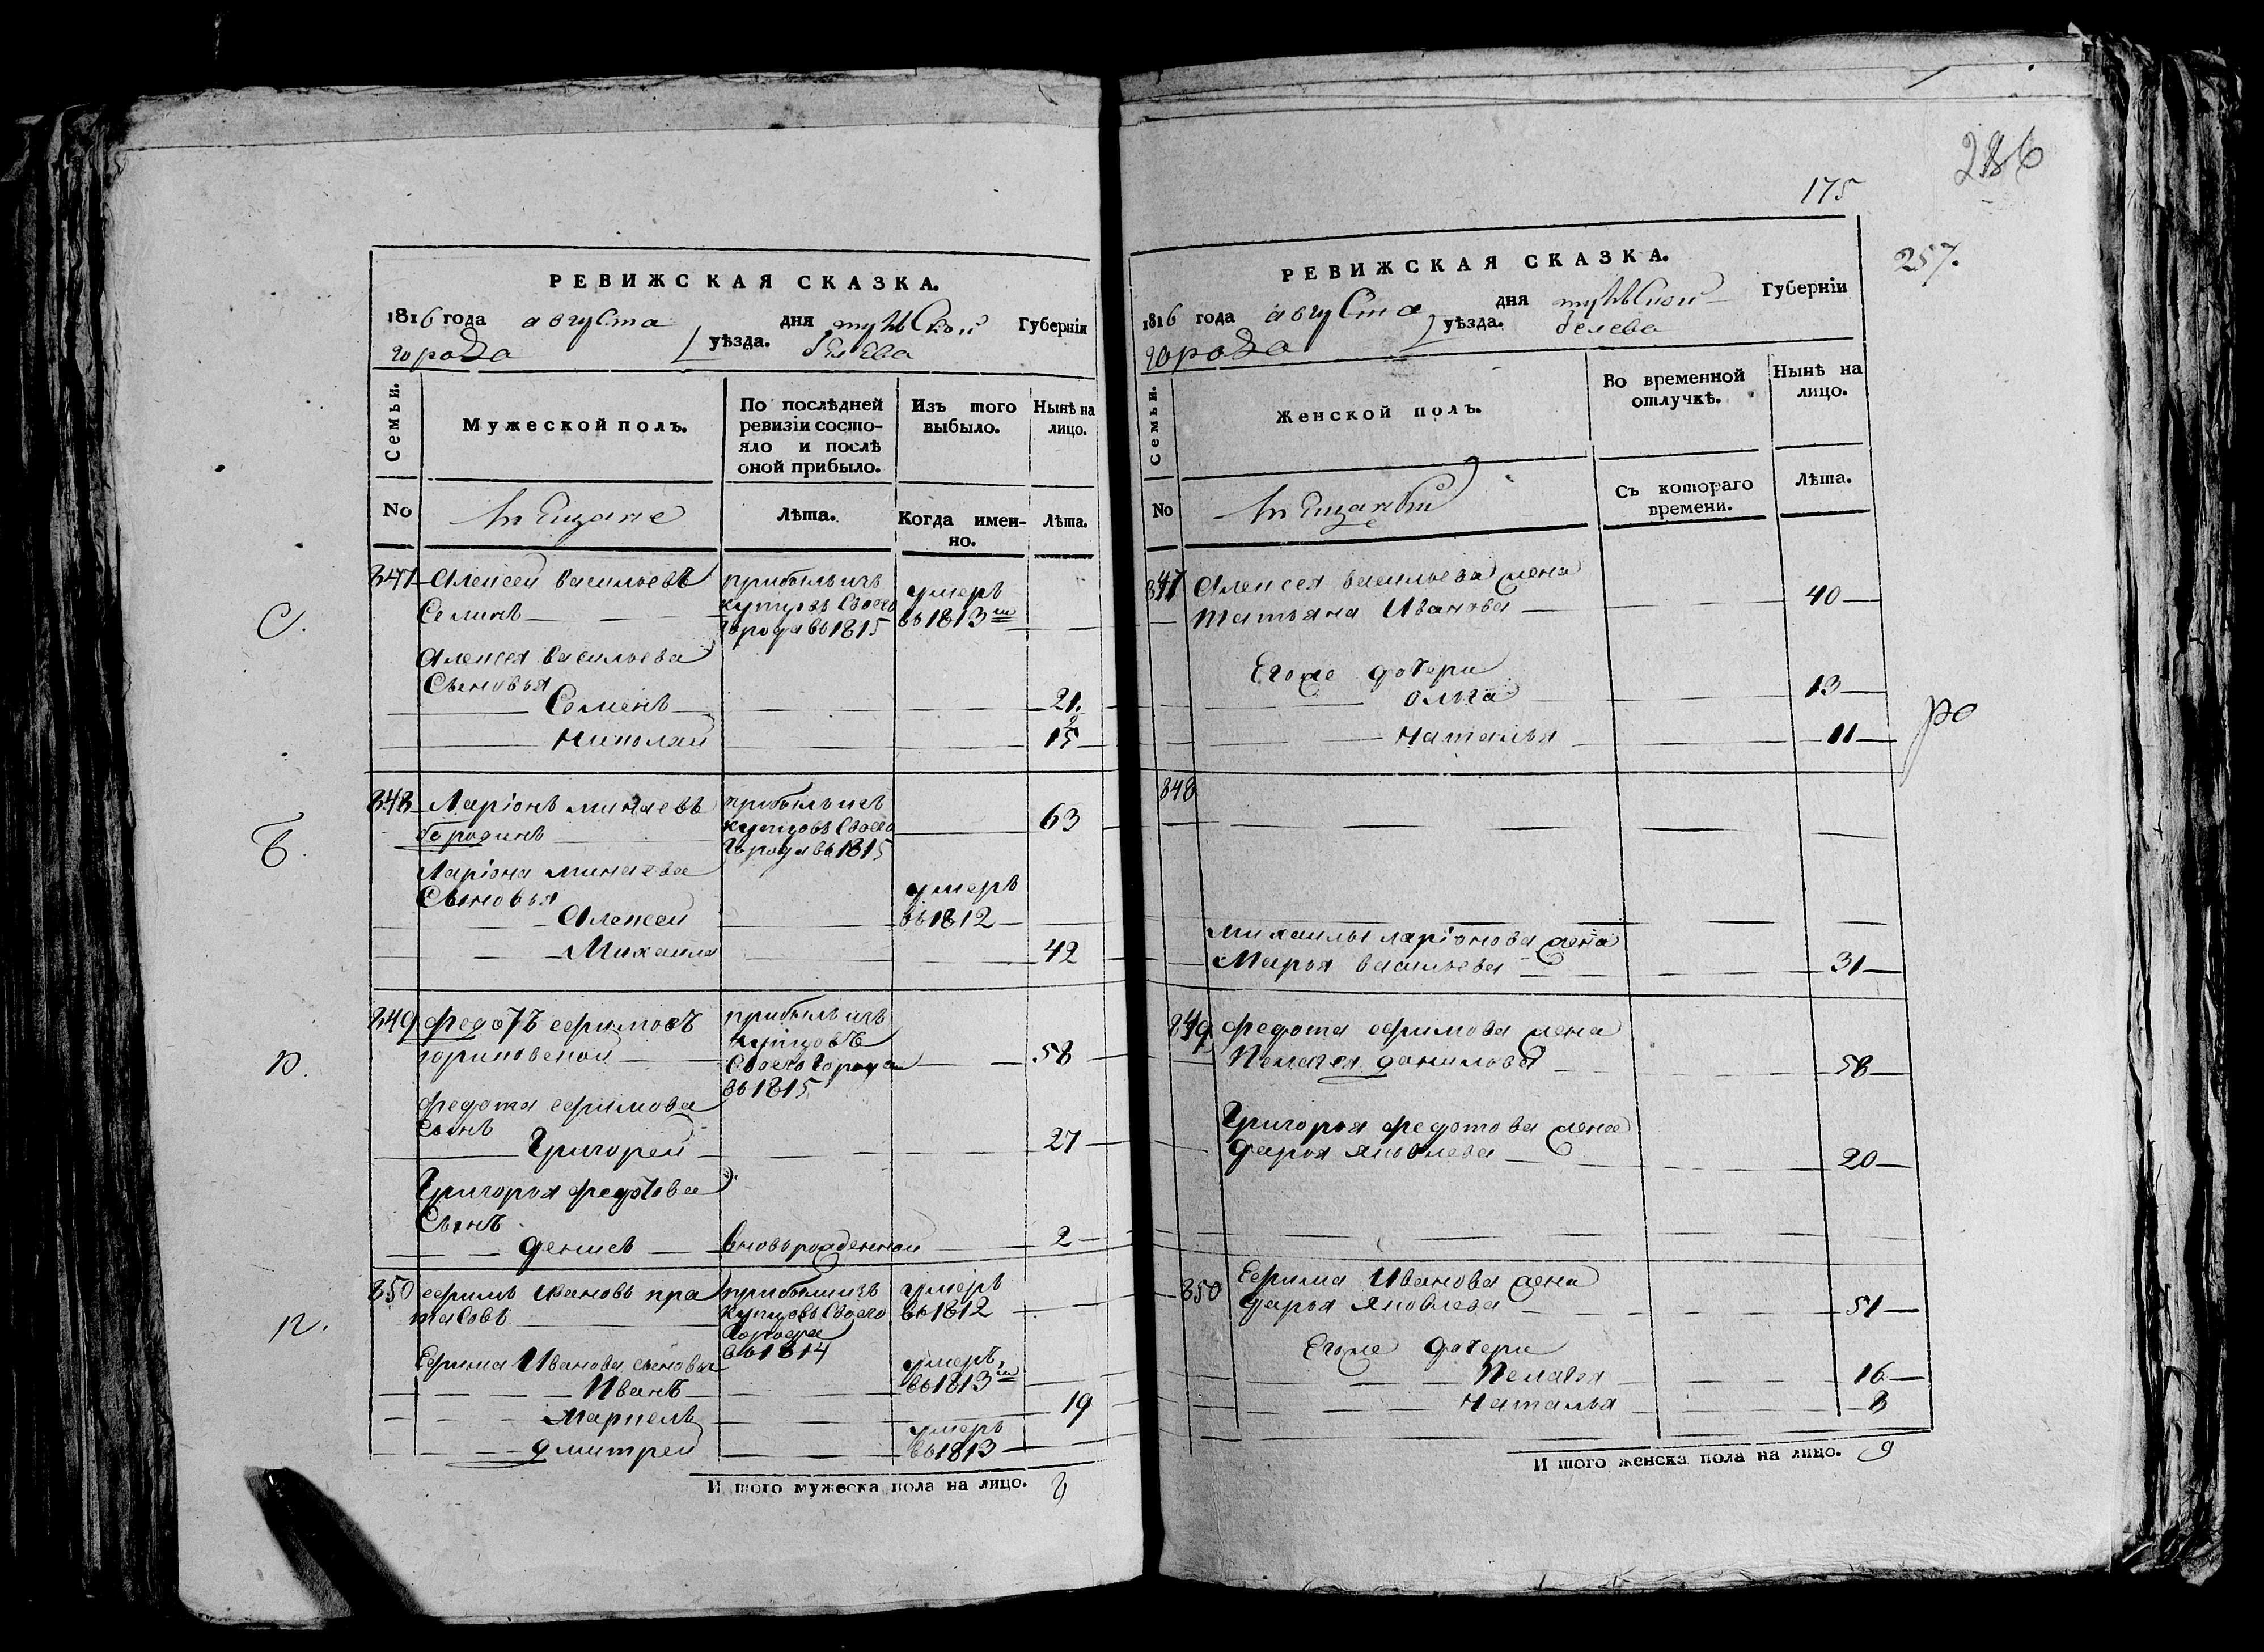 РЕВИЖСКАЯ СКАЗКА.
1816 года августа дня тульской Губерніи
города уѣзда. белева
Семьи.
Мужеской полъ.
По послѣдней
ревизіи состо-
яло и послѣ
оной прибыло.
Изъ того
выбыло.
Нынѣ на
лицо.
No
мещане
Лѣта.
Когда имен-
но.
Лѣта.
С.
847 Алексей васильевъ
Селинъ
прибылъ изъ
купцовъ своего
города въ 1815
умеръ
въ 1813
Алексея васильева
Сыновья
Семенъ 21.
Николай 15
Б.
848 Ларіонъ минаевъ
бородинъ
прибылъ изъ
купцовъ своего
города въ 1815
63
Ларіона минаева
Сыновья
Алексей
умеръ
въ 1812
Михаила 42
849 федотъ ефимовъ
прибылъ изъ
купцовъ
своего города
въ 1815
58
федота ефимова
сынъ
Григорей 27
Григорья федотова
Сынъ
денисъ вновърожденной 2
п.
850 ефимъ Ивановъ пра
тасовъ
прибылъ изъ
купцовъ своего
города
въ 1814
умеръ
въ 1812
Ефима Иванова сыновья
Иванъ
умеръ
въ 1813
маркелъ 19
дмитрей
умеръ
въ 1813
И того мужеска пола на лицо. 8
286
175
257.
РЕВИЖСКАЯ СКАЗКА.
1816 года августа дня тульской Губерніи
города уѣзда. белева
Семьи.
Женской полъ.
Во временной
отлучкѣ.
Нынѣ на
лицо.
No
мещанки
Съ котораго
времени.
Лѣта.
847 Алексея васильева жена
татьяна Иванова 40
Егоже дочери
ольга 13
наталья 11
848
михаилы ларіонова жена
Марья васильева 31
849 федота ефимова жена
Пелагея данилова 58
Григорья федотова жена
дарья яковлева 20
850 Ефима Иванова жена
дарья яковлева 51
Егоже дочери
Пелагея 16
наталья 8
И того женска пола на лицо. 9